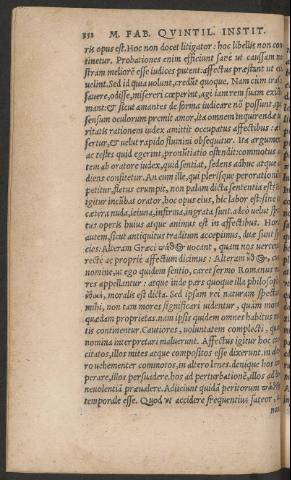 352 M. FAB. QVINTIL. INSTIT.
ris opus est. Hoc non docet litigator: hoc libellis non con
tinetur. Probationes enim efficiunt sane ut causam no
stram meliorē esse iudices putent: affectus præstant ut e
uelint. Sed id quod uolunt, credūt quoque. Nam cum irasc
fauere, odisse, misereri cœperint, agi iam rem suam exist
mant: & sicut amantes de forma iudicare nō possunt, q
sensum oculorum præmit amor, ita omnem inquirendæ u
ritatis rationem iudex amittit occupatus affectibus: æ
fertur, & uelut rapido flumini obsequitur. Ita argumen
ac testes quid egerint, pronūtiatio ostendit: commotus a
tem ab oratore iudex, quid sentiat, sedens adhuc atque
diens confitetur. An cum ille, qui plerisque perorationi
petitur, fletus erumpit, non palam dicta sententia est? E
igitur incūbat orator, hoc opus eius, hic labor est: sine q
cætera nuda, ieiuna, infirma, ingrata sunt. adeò uelut sp
tus operis huius atque animus est in affectibus. Hor
autem, sicut antiquitus traditum accepimus, duæ sunt sp
cies: Alteram Græci πάθ@ uocant, quam nos uerten
rectè ac propriè affectum dicimus: Alteram ἦθ@, cu
nomine, ut ego quidem sentio, caret sermo Romanus
res appellantur: atque inde pars quoque illa philosoph
ἠθικὴ, moralis est dicta. Sed ipsam rei naturam specta
mihi, non tam mores significari uidentur, quàm mor
quædam proprietas. nam ipsis quidem omnes habitus m
tis continentur. Cautiores, uoluntatem complecti, qu
nomina interpretari maluerunt. Affectus igitur hos co
citatos, illos mites atque compositos esse dixerunt. in al
ro uehementer commotos, in altero lenes. denique hos
perare, illos persuadere. hos ad perturbationē, illos ad b
neuolentiā præualere. Adijciunt quidā peritorum πάθ
temporale esse. Quod ut accidere frequentius fateor,